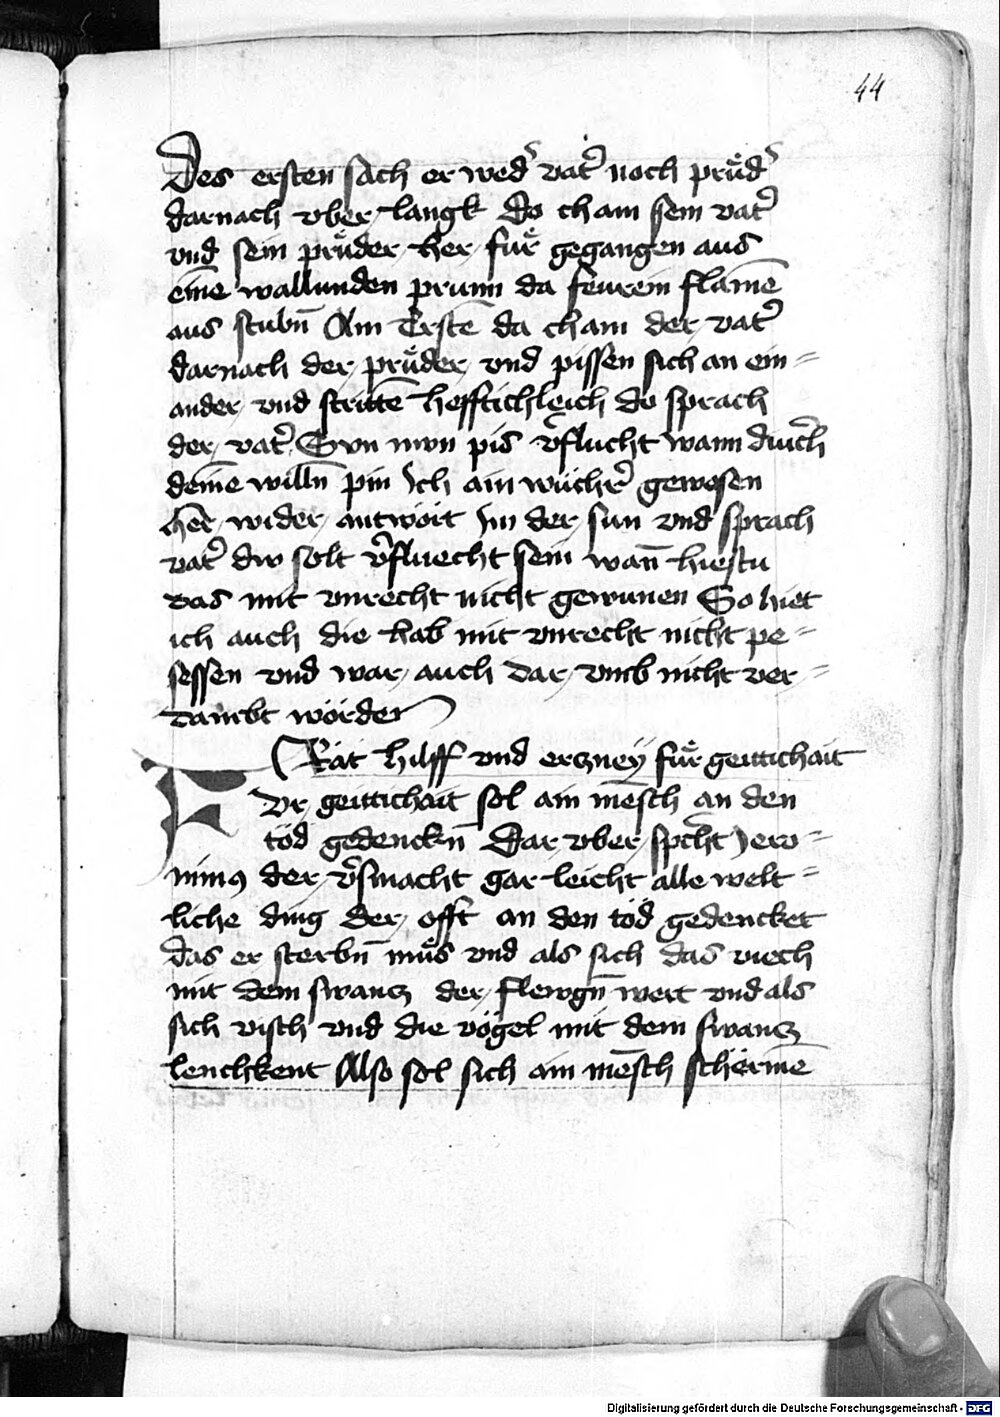 44
Des ersten sach er wed' vat' noch průd'
darnach vber langk do cham sein vat'
vnd sein průder her fůr gegangen aus
eīne wallunden prunn da fewrein flamē
aus stubn̄ Am Erstē da cham der vat'
darnach der průder vnd pissen sich an ein=
ander vnd strittē hefftichleich do sprach
der vat' Svn nwn pis v'flucht wann durch
deīne willn̄ pin ich ain wůchr' gewesen
her wider antwört im der sun vnd sprach
vat' dw solt v'fluecht sein wan̄ hiestu
das mit vnrecht nicht gewunen So hiet
ich auch die hab mit vnrecht nicht pe=
sessen vnd war auch dar vmb nicht ver=
dambt wörden
Rat hilff vnd ercznëy fůr geittichait
Fvr geittichait sol ain mēsch an den
töd gedenckn̄ Dar vber sprͨht Jero=
nimꝯ der v'smacht gar leicht alle welt=
liche ding der offt an den töd gedencket
das er sterbn̄ můs vnd als sich das viech
mit dem swancz der flewgn̄ wert vnd als
sich visch vnd die vögel mit dem swancz
lenchkent Also sol sich ain mēsch schermē
Digitalisierung gefördert durch die Deutsche Forschungsgemeinschaft - DFG